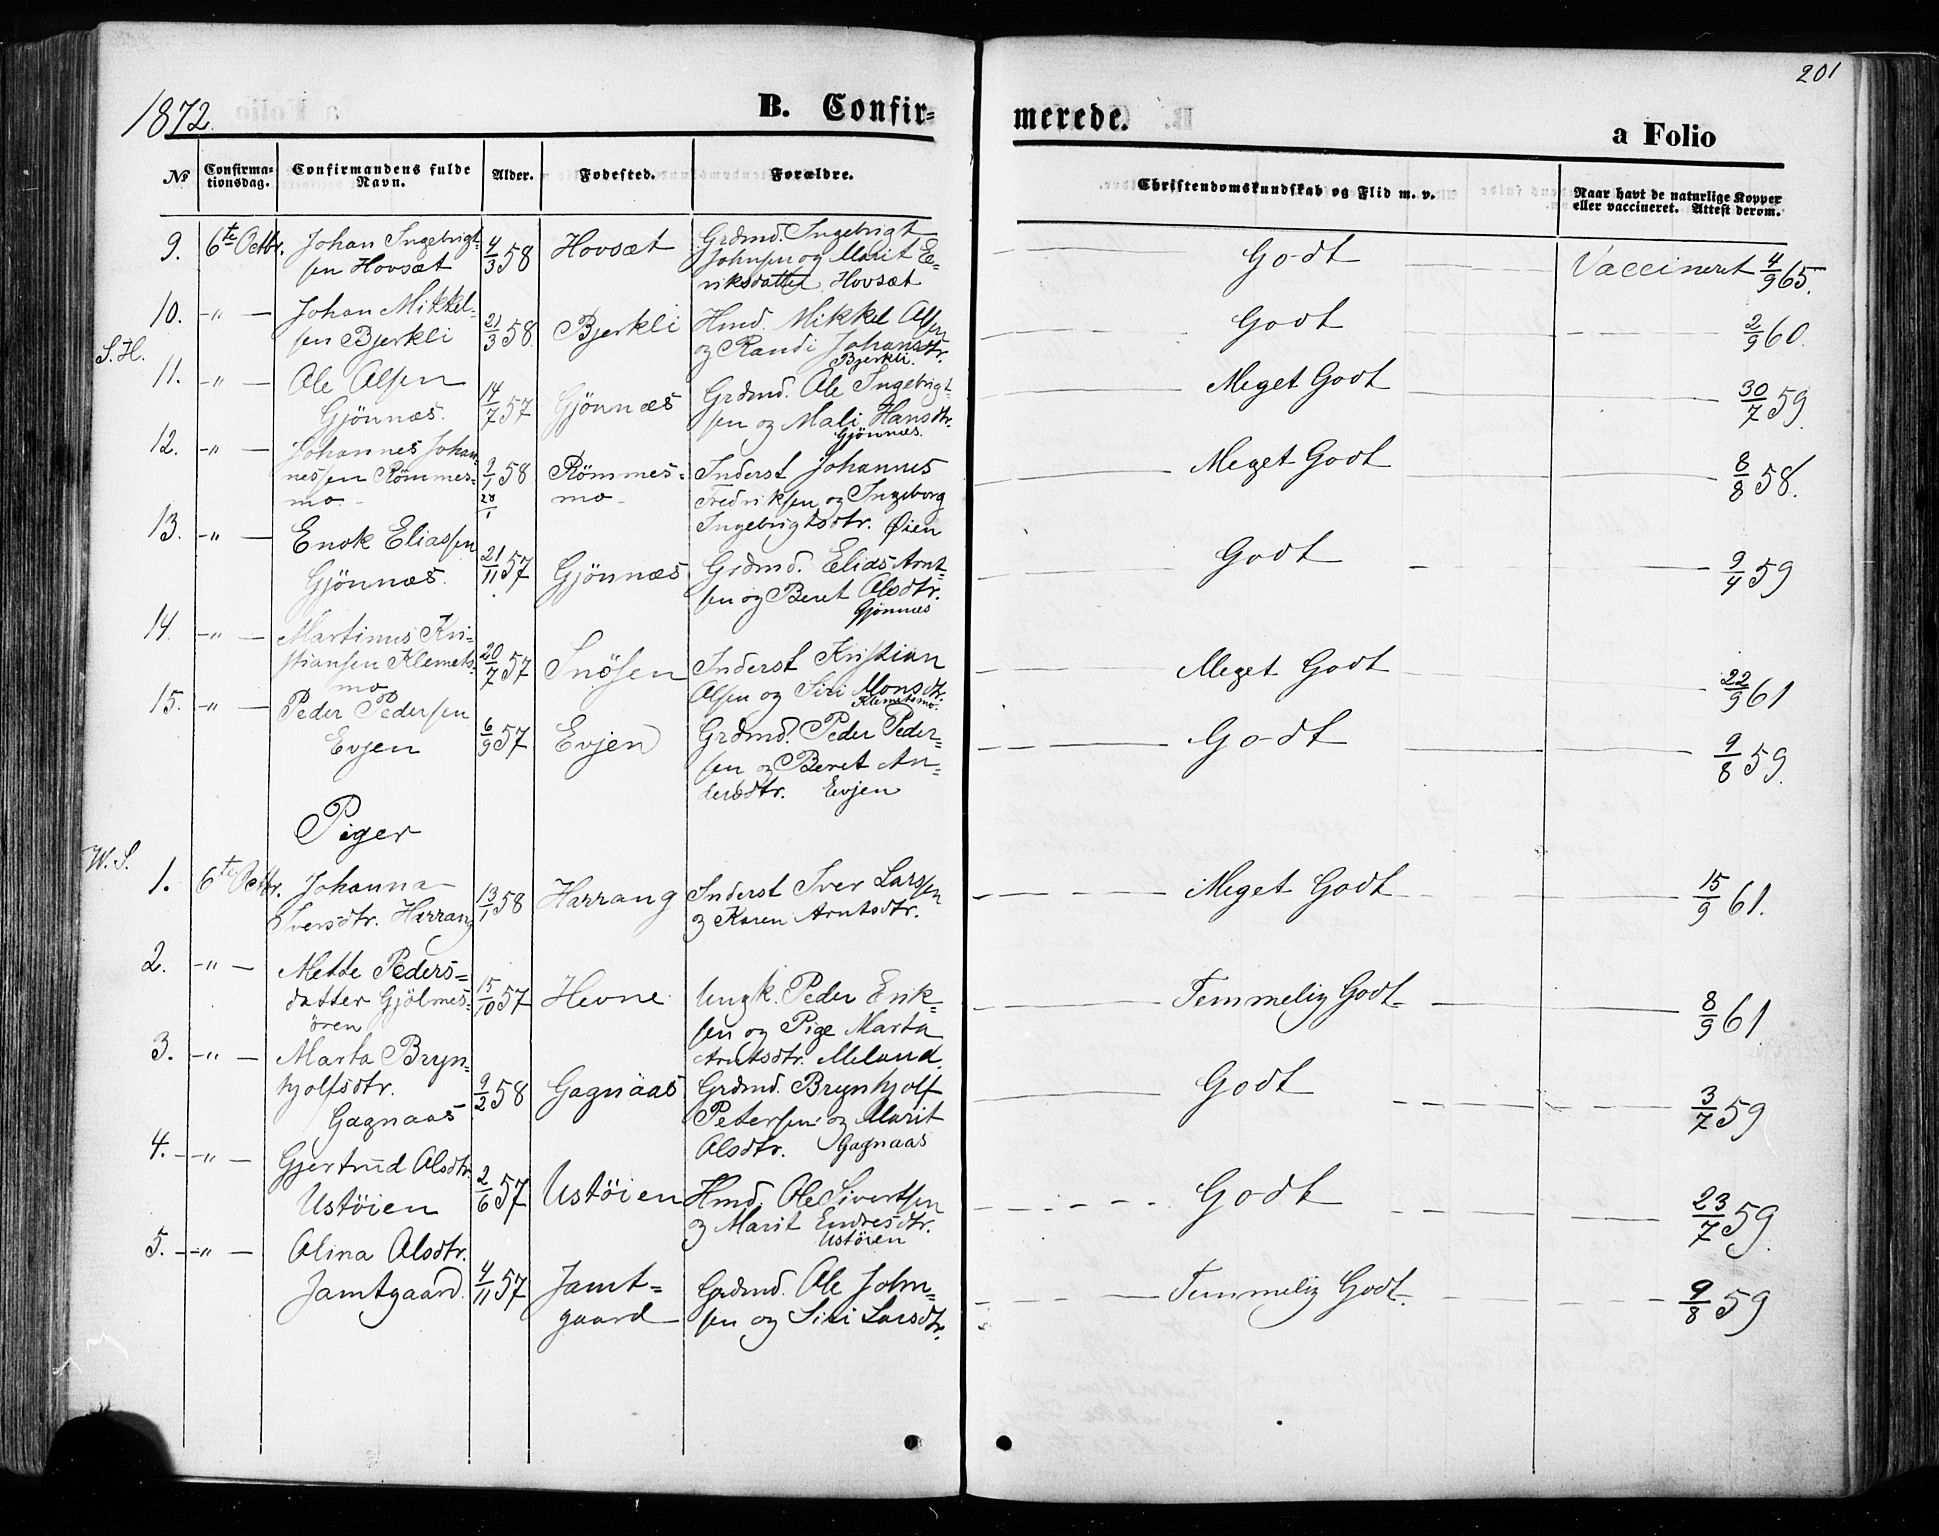 201
1872.
B. Confir-
merede.
a Folio
No
Confirma-
tionsdag.
Confirmandens fulde
Navn.
Alder.
Fødested.
Forældre.
Christendomskundskab og Flid m. v.
Naar havt de naturlige Kopper
eller vaccineret. Attest derom.
9. 6te Octbr. Johan Ingebrigt-
sen Hovsæt
4/3 58 Hovsæt
Grdmd. Ingebrigt
Johnsen og Marit Ee-
riksdatter Hovsæt
Godt
Vaccineret 4/9 65.
10. -"- Johan Mikkel-
sen Bjerkli
21/3 58. Bjerkli
Hmd. Mikkel Olsen
og Randi Johansdtr.
Bjerkli.
Godt
2/9 60.
S. H.
11. -"- Ole Olsen
Gjönnæs.
14/7 57 Gjönnæs
Grdmd. Ole Ingebrigt-
sen og Mali Hansdtr.
Gjönnæs.
Meget Godt
30/7 59.
12. -"- Johannes Johan-
nessen Römmes-
mo.
9/1 58
28/1
Römmes-
mo
Inderst Johannes
Fredriksen og Ingeborg
Ingebrigtsdtr. Øien
Meget Godt
8/8 58.
13. -"- Enok Eliassen
Gjönnæs.
21/11 57 Gjönnæs
Grdmd. Elias Arnt-
sen og Beret Olsdtr.
Gjönnæs
Godt
9/4 59
14. -"- Martinus Kri-
stiansen Klemets-
mo
20/7 57 Snösen
Inderst Kristian
Olsen og Siri Monsdtr.
Klemetsmo.
Meget Godt
22/9 61
15. -"- Peder Pedersen
Evjen
6/9 57 Evjen
Grdmd. Peder Peder-
sen og Beret An-
dersdtr. Evjen
Godt
9/8 59.
Piger
W. S.
1. 6te Octbr. Johanna
Iversdtr. Harrang
13/1 58 Harrang
Inderst Iver Larssen
og Karen Arntsdtr.
Meget Godt
15/9 61.
2. -"- Mette Peders-
datter Gjölmes-
ören
15/10 57 Hevne
Ungk. Peder Erik-
sen og Pige Marta
Arntsdtr. Meland.
Temmelig Godt
8/9 61.
3. -"- Marta Bryn-
hjolfsdtr.
Gagnaas
9/2 58 Gagnaas
Grdmd. Brynhjolf
Petersen og Marit
Olsdtr. Gagnaas
Godt
3/7 59
4. -"- Gjertrud Olsdtr.
Ustöien
2/6 57 Ustöien
Hmd. Ole Sivertsen
og Marit Endresdtr.
Ustöien
Godt
23/7 59.
5. -"- Olina Olsdtr.
Jamtgaard.
4/11 57 Jamt-
gaard
Grdmd. Ole John-
sen og Siri Larsdtr.
Temmelig Godt.
9/8 59